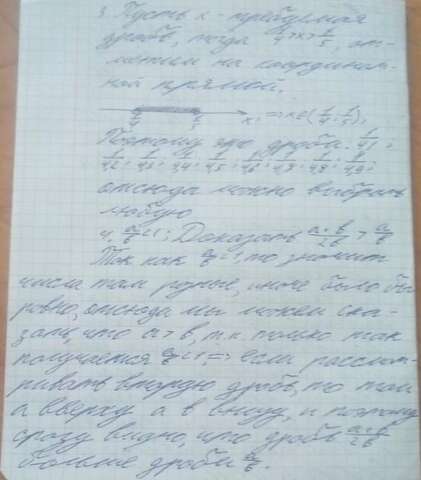 3. Пусть x - требуемая
дробь, тогда 1/4 > x > 1/5, от-
метим на координат-
ной прямой.
1/4 1/5 x. => x ∈ (1/4; 1/5),
Поэтому это дроби: 1/41;
1/42; 1/43; 1/44; 1/45; 1/46; 1/47; 1/48; 1/49;
отсюда можно выбрать
любую
4. a/b < 1; Доказать a+b/2b > a/b
Так как a/b < 1, то значит
числа там разные, иначе было бы
ровно, отсюда мы можем ска-
зать, что a > b, т.к. только так
получается a/b < 1 => если рассмат-
ривать вторую дробь, то там
a вверху а b внизу, и поэтому
сразу видно, что дробь a+b/2b
больше дроби a/b.